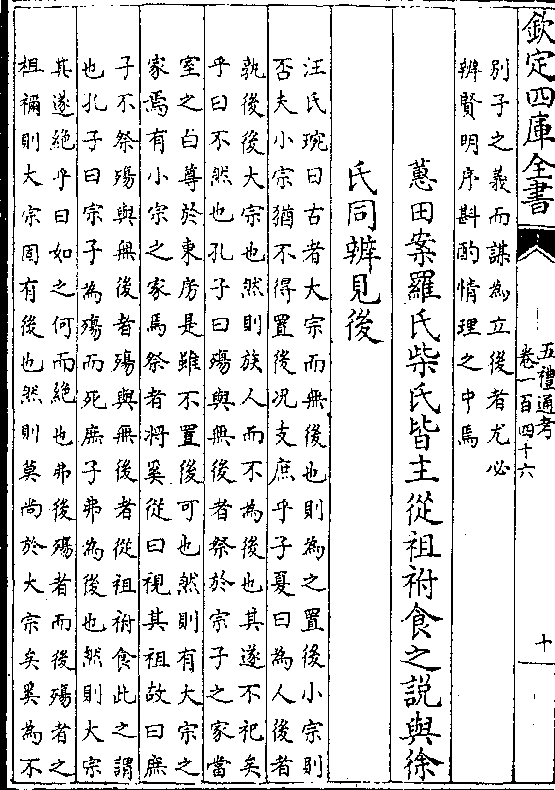 欽定四庫全書
五禮通考
卷一百四十六
十
别子之義而謀為立後者尤必
辨賢明序斟酌情理之中焉
蕙田案羅氏柴氏皆主從祖祔食之説與徐
氏同辨見後
汪氏琬曰古者大宗而無後也則為之置後小宗則
否夫小宗猶不得置後况支庶乎子夏曰為人後者
孰後後大宗也然則族人而不為後也其遂不祀矣
乎曰不然也孔子曰殤與無後者祭於宗子之家當
室之白尊於東房是雖不置後可也然則有大宗之
家焉有小宗之家焉祭者將奚從曰視其祖故曰庶
子不祭殤與無後者殤與無後者從祖祔食此之謂
也孔子曰宗子為殤而死庶子弗為後也然則大宗
其遂絶乎曰如之何而絶也弗後殤者而後殤者之
祖禰則大宗固有後也然則莫尚於大宗矣奚為不